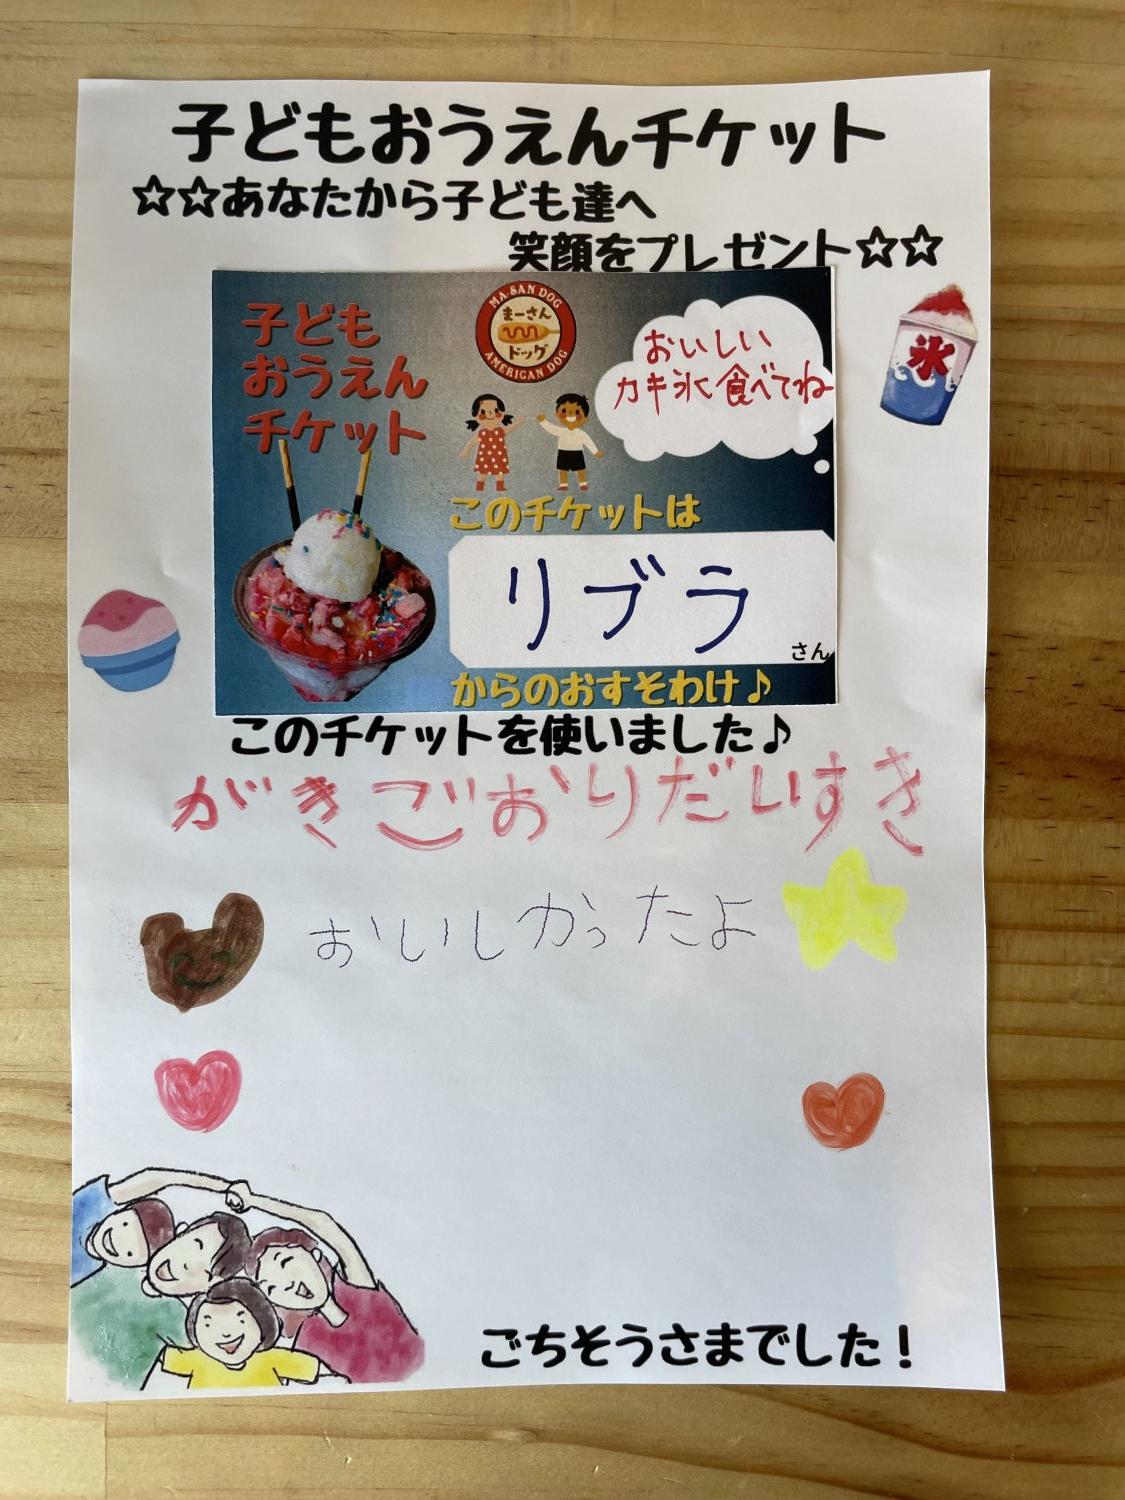 子どもおうえんチケット
☆☆あなたから子ども達へ
笑顔をプレゼント☆☆
子ども
おうえん
チケット
MA-SAN DOG
まーさん
ドッグ
AMERICAN DOG
おいしい
カキ氷食べてね
氷
このチケットは
リブラ
さん
からのおすそわけ♪
このチケットを使いました♪
がきごおりだいすき
おいしかったよ
ごちそうさまでした!